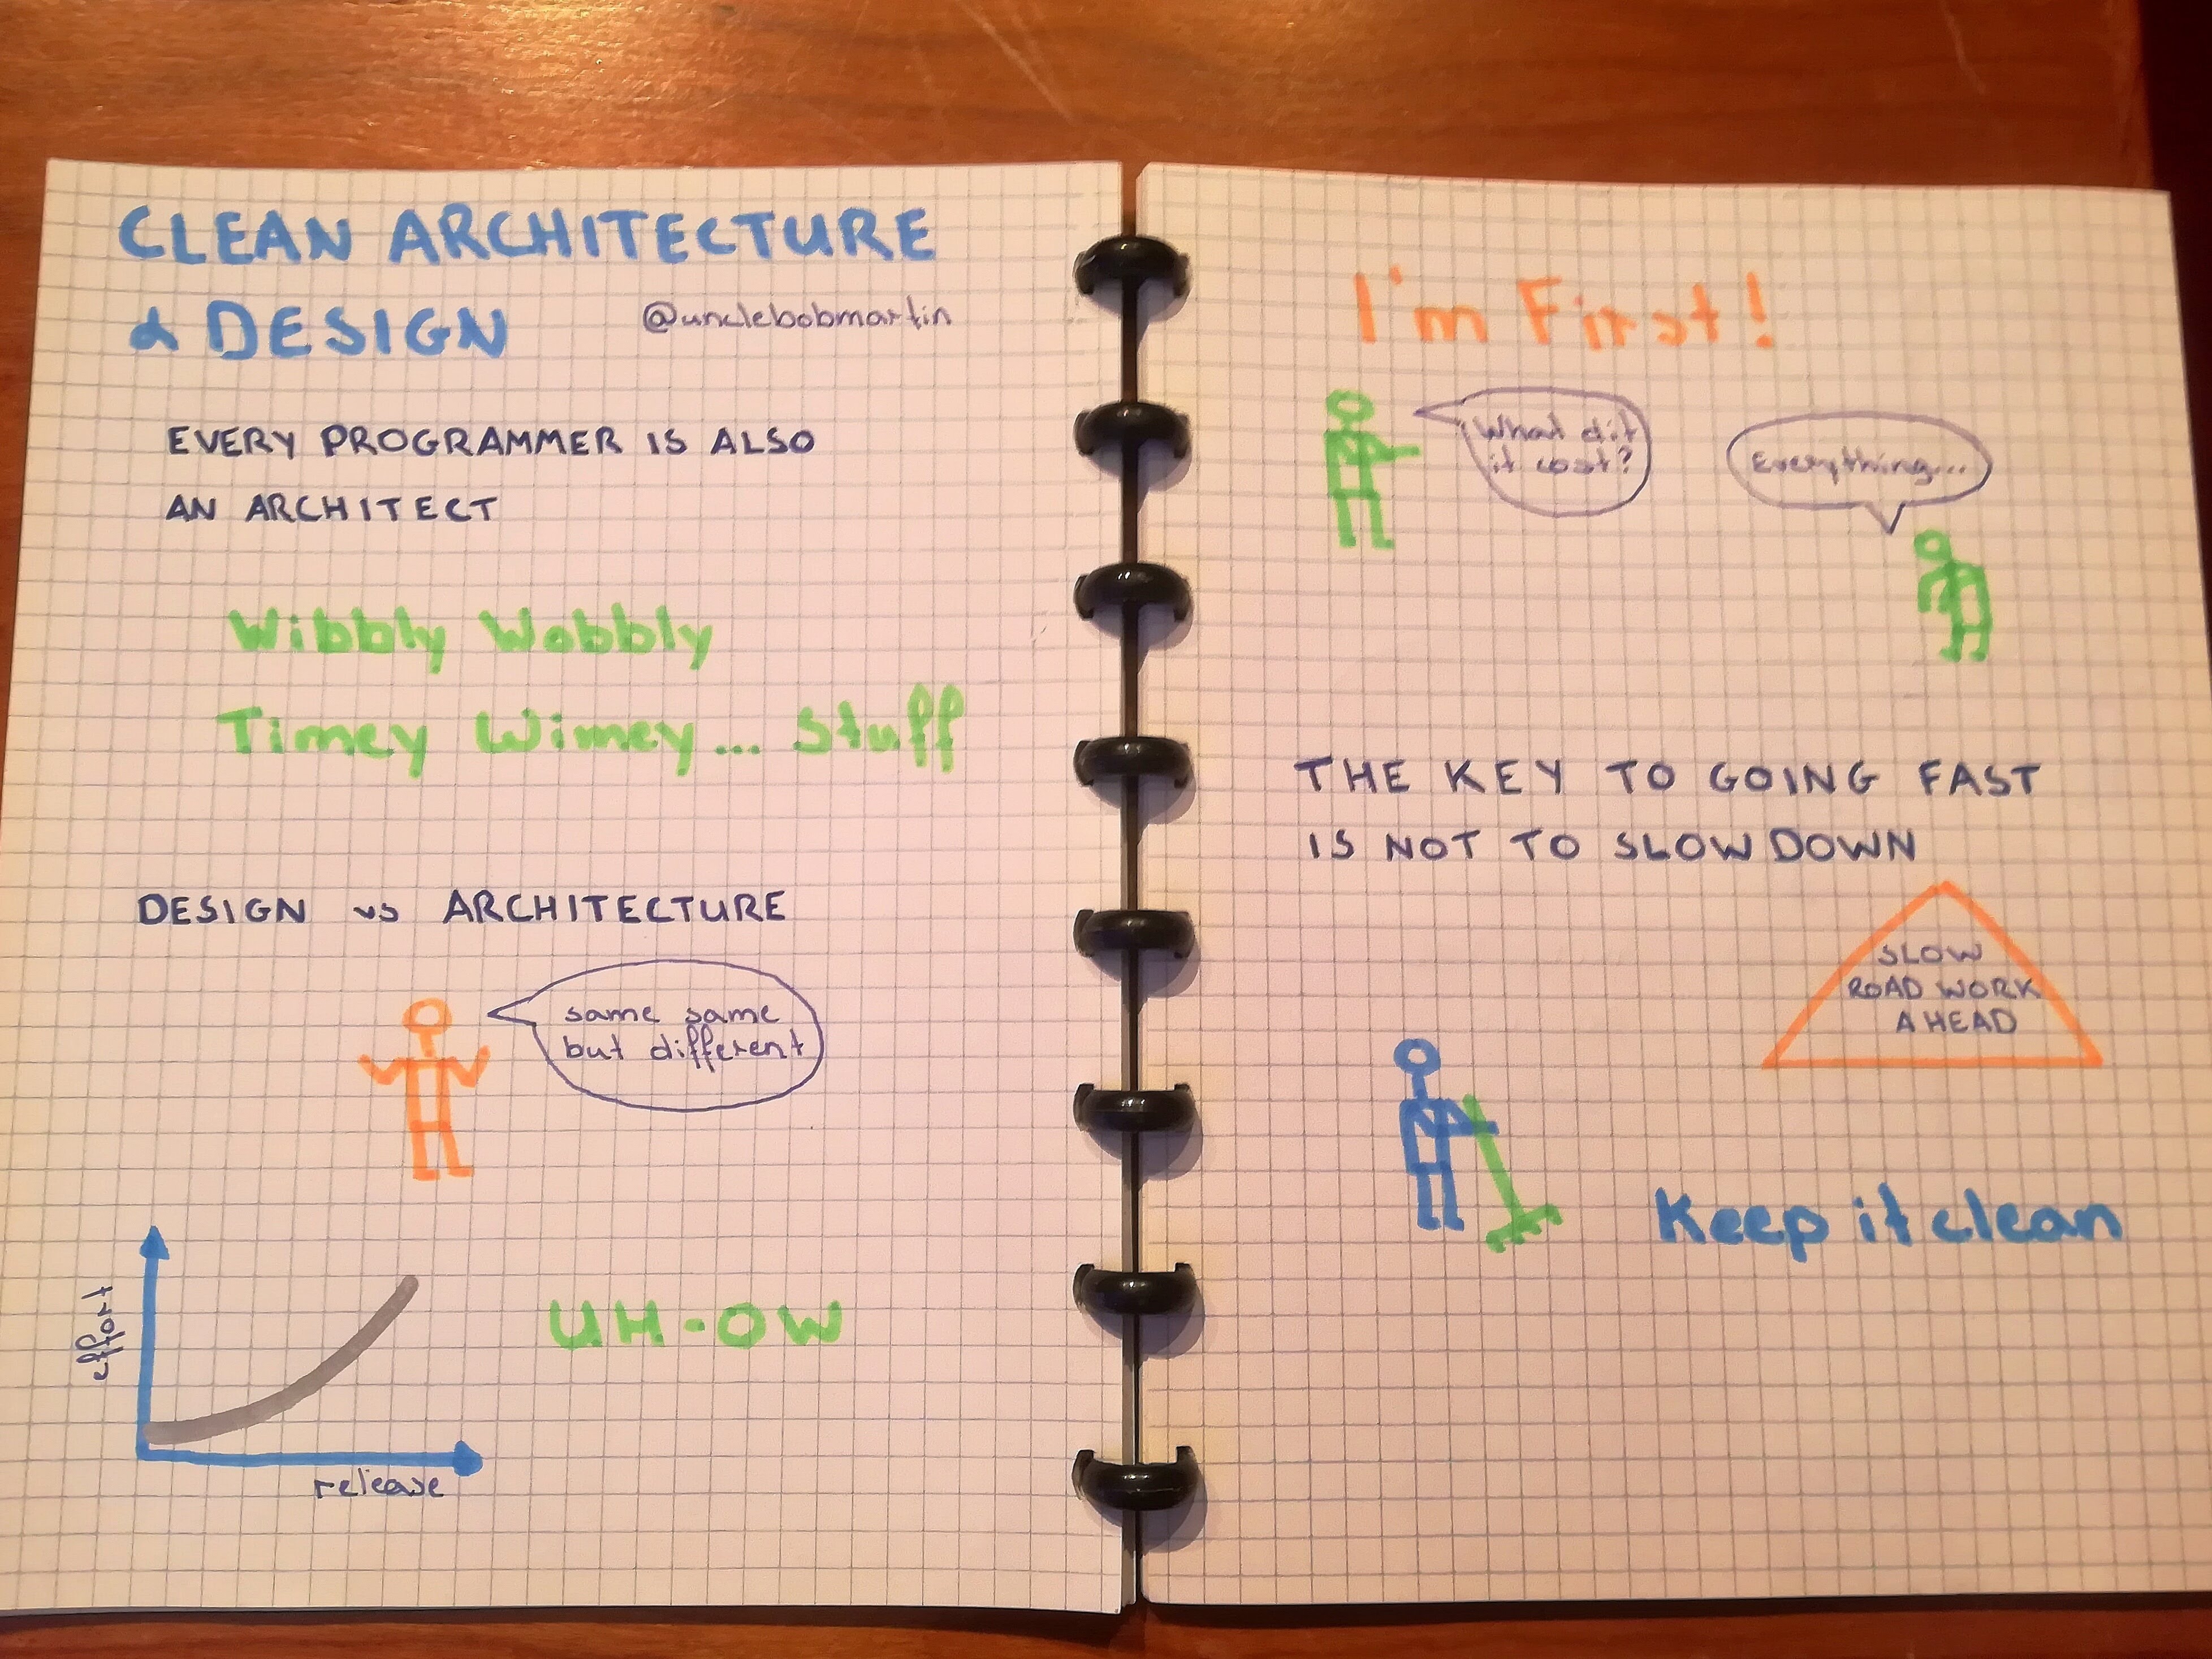 CLEAN ARCHITECTURE
& DESIGN @unclebobmartin
EVERY PROGRAMMER IS ALSO
AN ARCHITECT
Wibbly Wobbly
Timey Wimey... Stuff
DESIGN vs ARCHITECTURE
same same
but different
effort
release
UH-OW
I'm First!
What dit
it cost?
Everything...
THE KEY TO GOING FAST
IS NOT TO SLOW DOWN
SLOW
ROAD WORK
AHEAD
Keep it clean